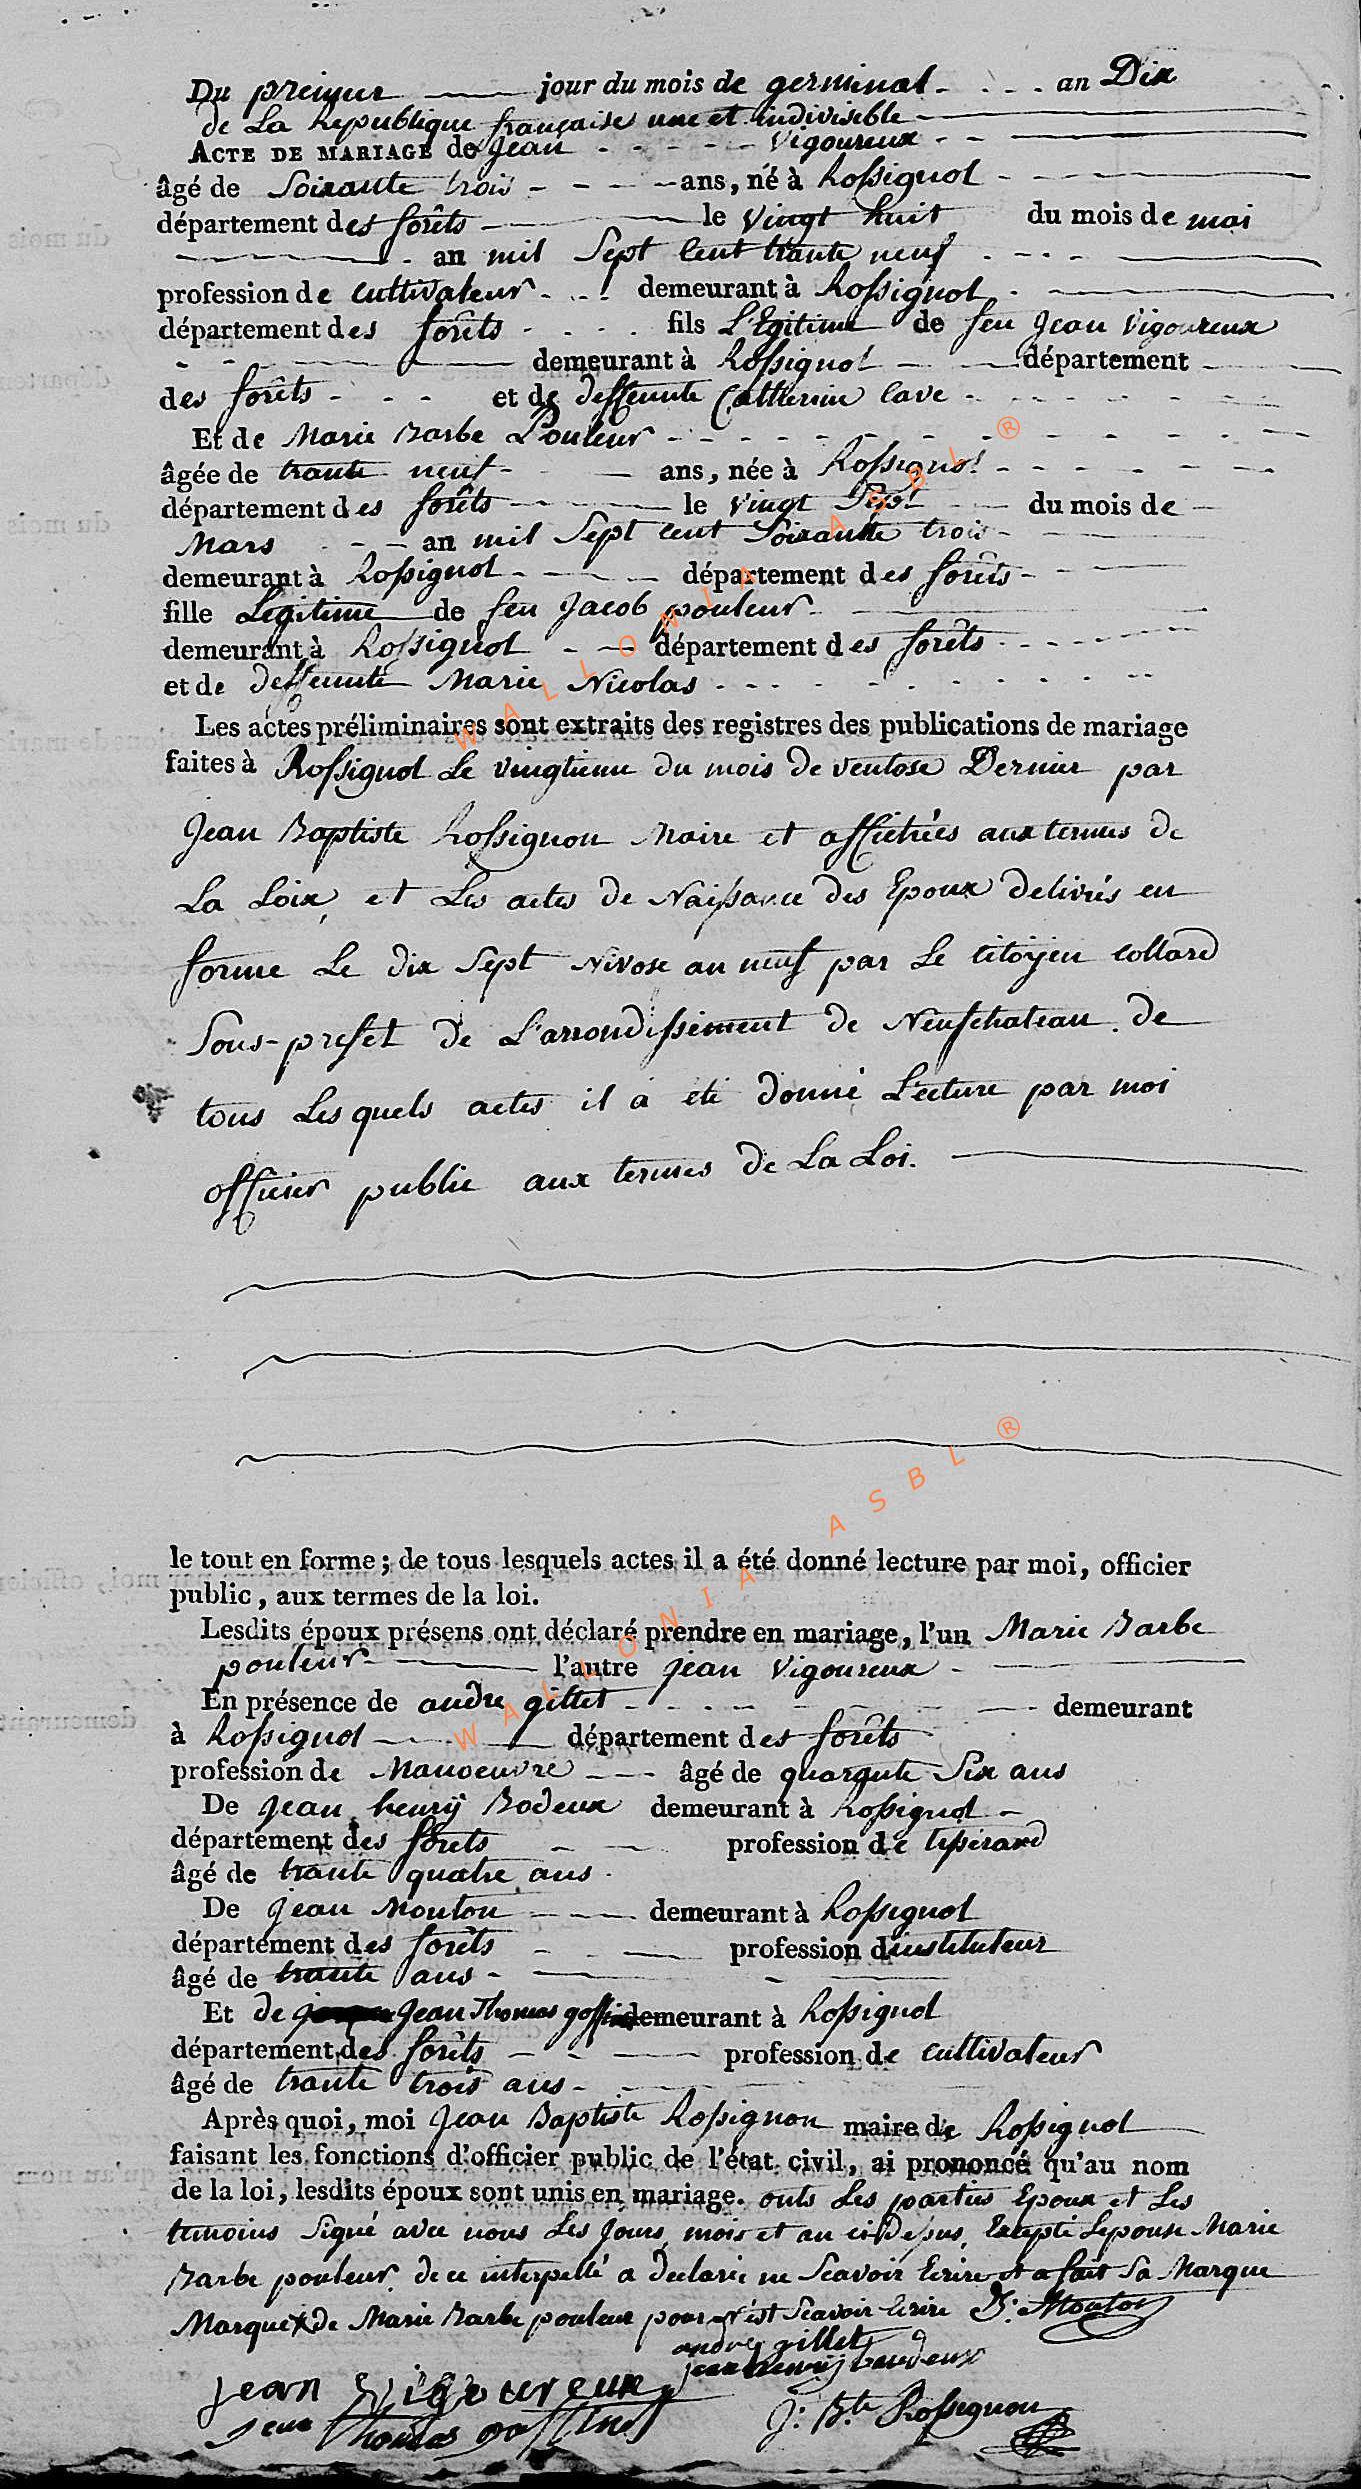 Du premier jour du mois de germinal an Dix
de La Republique française une et indivisible
ACTE DE MARIAGE de Jean Vigoureux
âgé de Soixante trois ans, né à Rossignol
département des forêts le vingt huit du mois de mai
an mil Sept Cent trante neuf
profession de cultivateur demeurant à Rossignol
département des forêts fils L'Egitime de feu Jean Vigoureux
demeurant à Rossignol département
des forêts et de deffunte Catherine lave
Et de Marie Barbe Pouleur
âgée de trante neuf ans, née à Rossignol
département des forêts le vingt Sept du mois de
Mars an mil Sept cent Soixante trois
demeurant à Rossignol département des forêts
fille Legitime de feu Jacob pouleur
demeurant à Rossignol département des forêts
et de deffunte Marie Nicolas
Les actes préliminaires sont extraits des registres des publications de mariage
faites à Rossignol Le vingtieme du mois de ventose Dernier par
Jean Baptiste Rossignon Maire et affichées aux termes de
La Loix, et Les actes de Naissance des Epoux delivrés en
forme Le dix Sept Nivose an neuf par Le citoyen Collard
Sous-prefet de L'arrondissement de Neufchateau. de
tous Lesquels actes il a été donné Lecture par moi
officier public aux termes de La Loi.
le tout en forme ; de tous lesquels actes il a été donné lecture par moi, officier
public, aux termes de la loi.
Lesdits époux présens ont déclaré prendre en mariage, l'un Marie Barbe
pouleur l'autre Jean Vigoureux
En présence de andre gillet demeurant
à Rossignol département des forêts
profession de Manoeuvre âgé de quarante Six ans
De Jean henry Bodeux demeurant à Rossignol
département des forêts profession de tisserand
âgé de trante quatre ans
De Jean Mouton demeurant à Rossignol
département des forêts profession d'instituteur
âgé de trante ans
Et de Jean Thomas goffinet demeurant à Rossignol
département des forêts profession de cultivateur
âgé de trante trois ans
Après quoi, moi Jean Baptiste Rossignon maire de Rossignol
faisant les fonctions d'officier public de l'état civil, ai prononcé qu'au nom
de la loi, lesdits époux sont unis en mariage. onts Les parties Epoux et Les
temoins Signé avec nous Les Jours, mois et an ci-Dessus, Excepté Lepouse Marie
Barbe pouleur, de ce interpellé a declaré ne Scavoir Ecrire et a fait Sa Marque
Marque X de Marie Barbe pouleur pour n'est Scavoir Ecrire Mouton
andre gillet
jean henry baudeux
jean vigoureux
jean thomas goffinet
J: Bte Rossignon
WALLONIA ASBL ®
WALLONIA ASBL ®